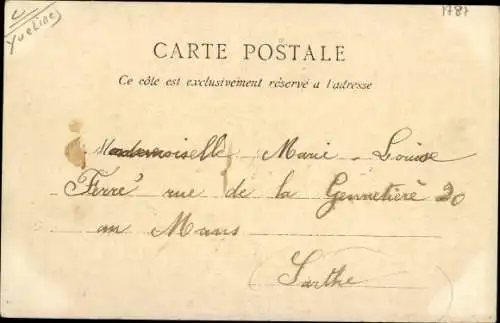 Yvelines
1787
CARTE POSTALE
Ce côte est exclusivement réservé a l'adresse
Mademoiselle Marie-Louise
Ferré rue de la Gennetière 20
au Mans
Sarthe